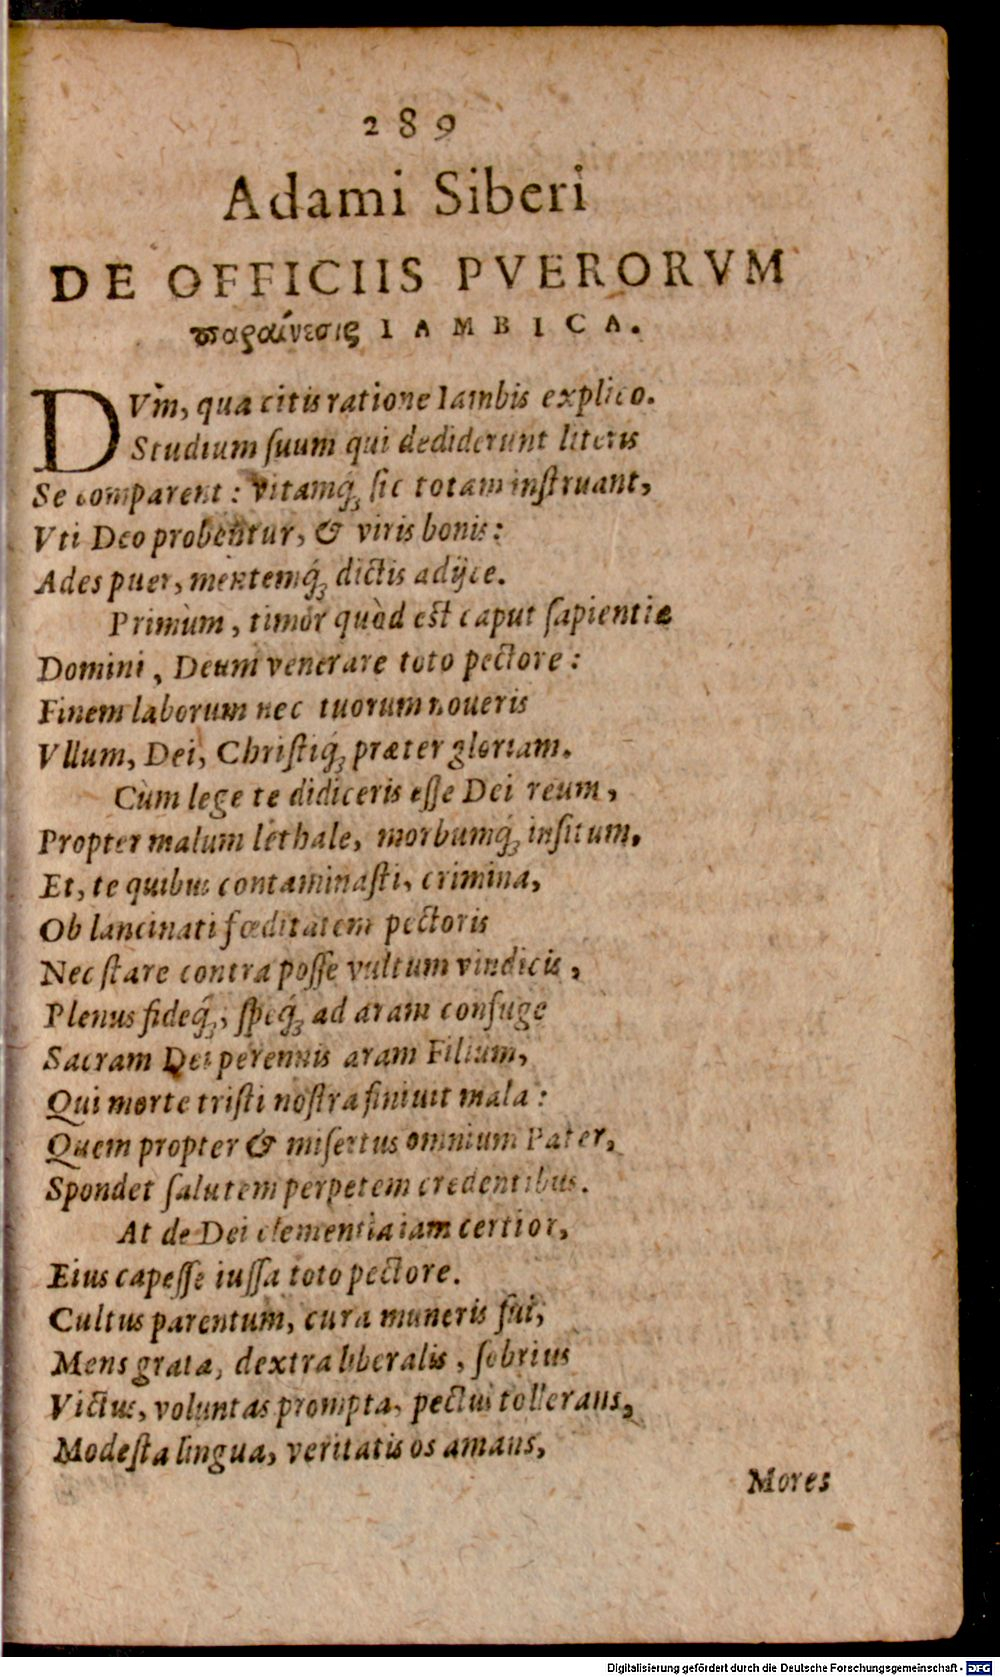 289
Adami Siberi
DE OFFICIIS PVERORVM
παραίνεσις IAMBICA.
DVm, qua citis ratione Iambis explico.
Studium ſuum qui dediderunt literis
Se comparent: vitamq́ꝫ ſic totam inſtruant,
Vti Deo probentur, & viris bonis:
Ades puer, mentemq́ꝫ dictis adijce.
Primùm, timor quòd est caput ſapientiæ
Domini, Deum venerare toto pectore:
Finem laborum nec tuorum noueris
Vllum, Dei, Chriſtiq́ꝫ præter gloriam.
Cùm lege te didiceris eſſe Dei reum,
Propter malum lethale, morbumq́ꝫ inſitum,
Et, te quibus contaminaſti, crimina,
Ob lancinati fœditatem pectoris
Nec ſtare contra poſſe vultum vindicis,
Plenus fideq́ꝫ, ſpeq́ꝫ ad aram confuge
Sacram Dei perennis aram Filium,
Qui morte triſti noſtra finiuit mala:
Quem propter & miſertus omnium Pater,
Spondet ſalutem perpetem credentibus.
At de Dei clementia iam certior,
Eius capeſſe iuſſa toto pectore.
Cultus parentum, cura muneris ſui,
Mens grata, dextra liberalis, ſobrius
Victus, voluntas prompta, pectus tollerans,
Modeſta lingua, veritatis os amans,
Mores
Digitalisierung gefördert durch die Deutsche Forschungsgemeinschaft - DFG